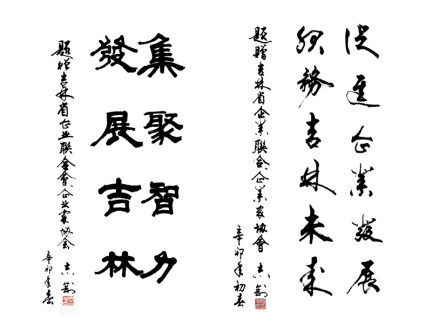 促進企業發展
服務吉林未来
題贈吉林省企業聯合會企業家協會
辛卯年初春
集聚智力
發展吉林
題贈吉林省企业聯合會企业家协会
辛卯年春